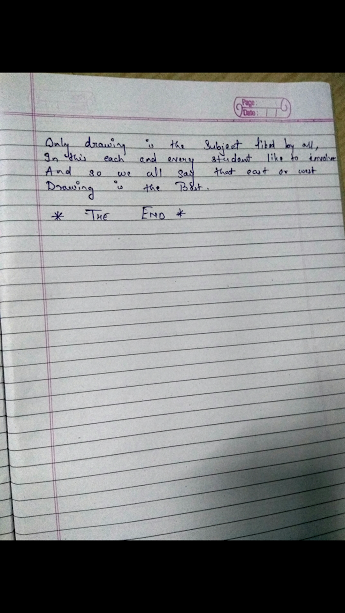 Page:
Date: / /
Only drawing is the Subject liked by all,
In this each and every student like to involve
And so we all say that east or west
Drawing is the Best.
* THE END *